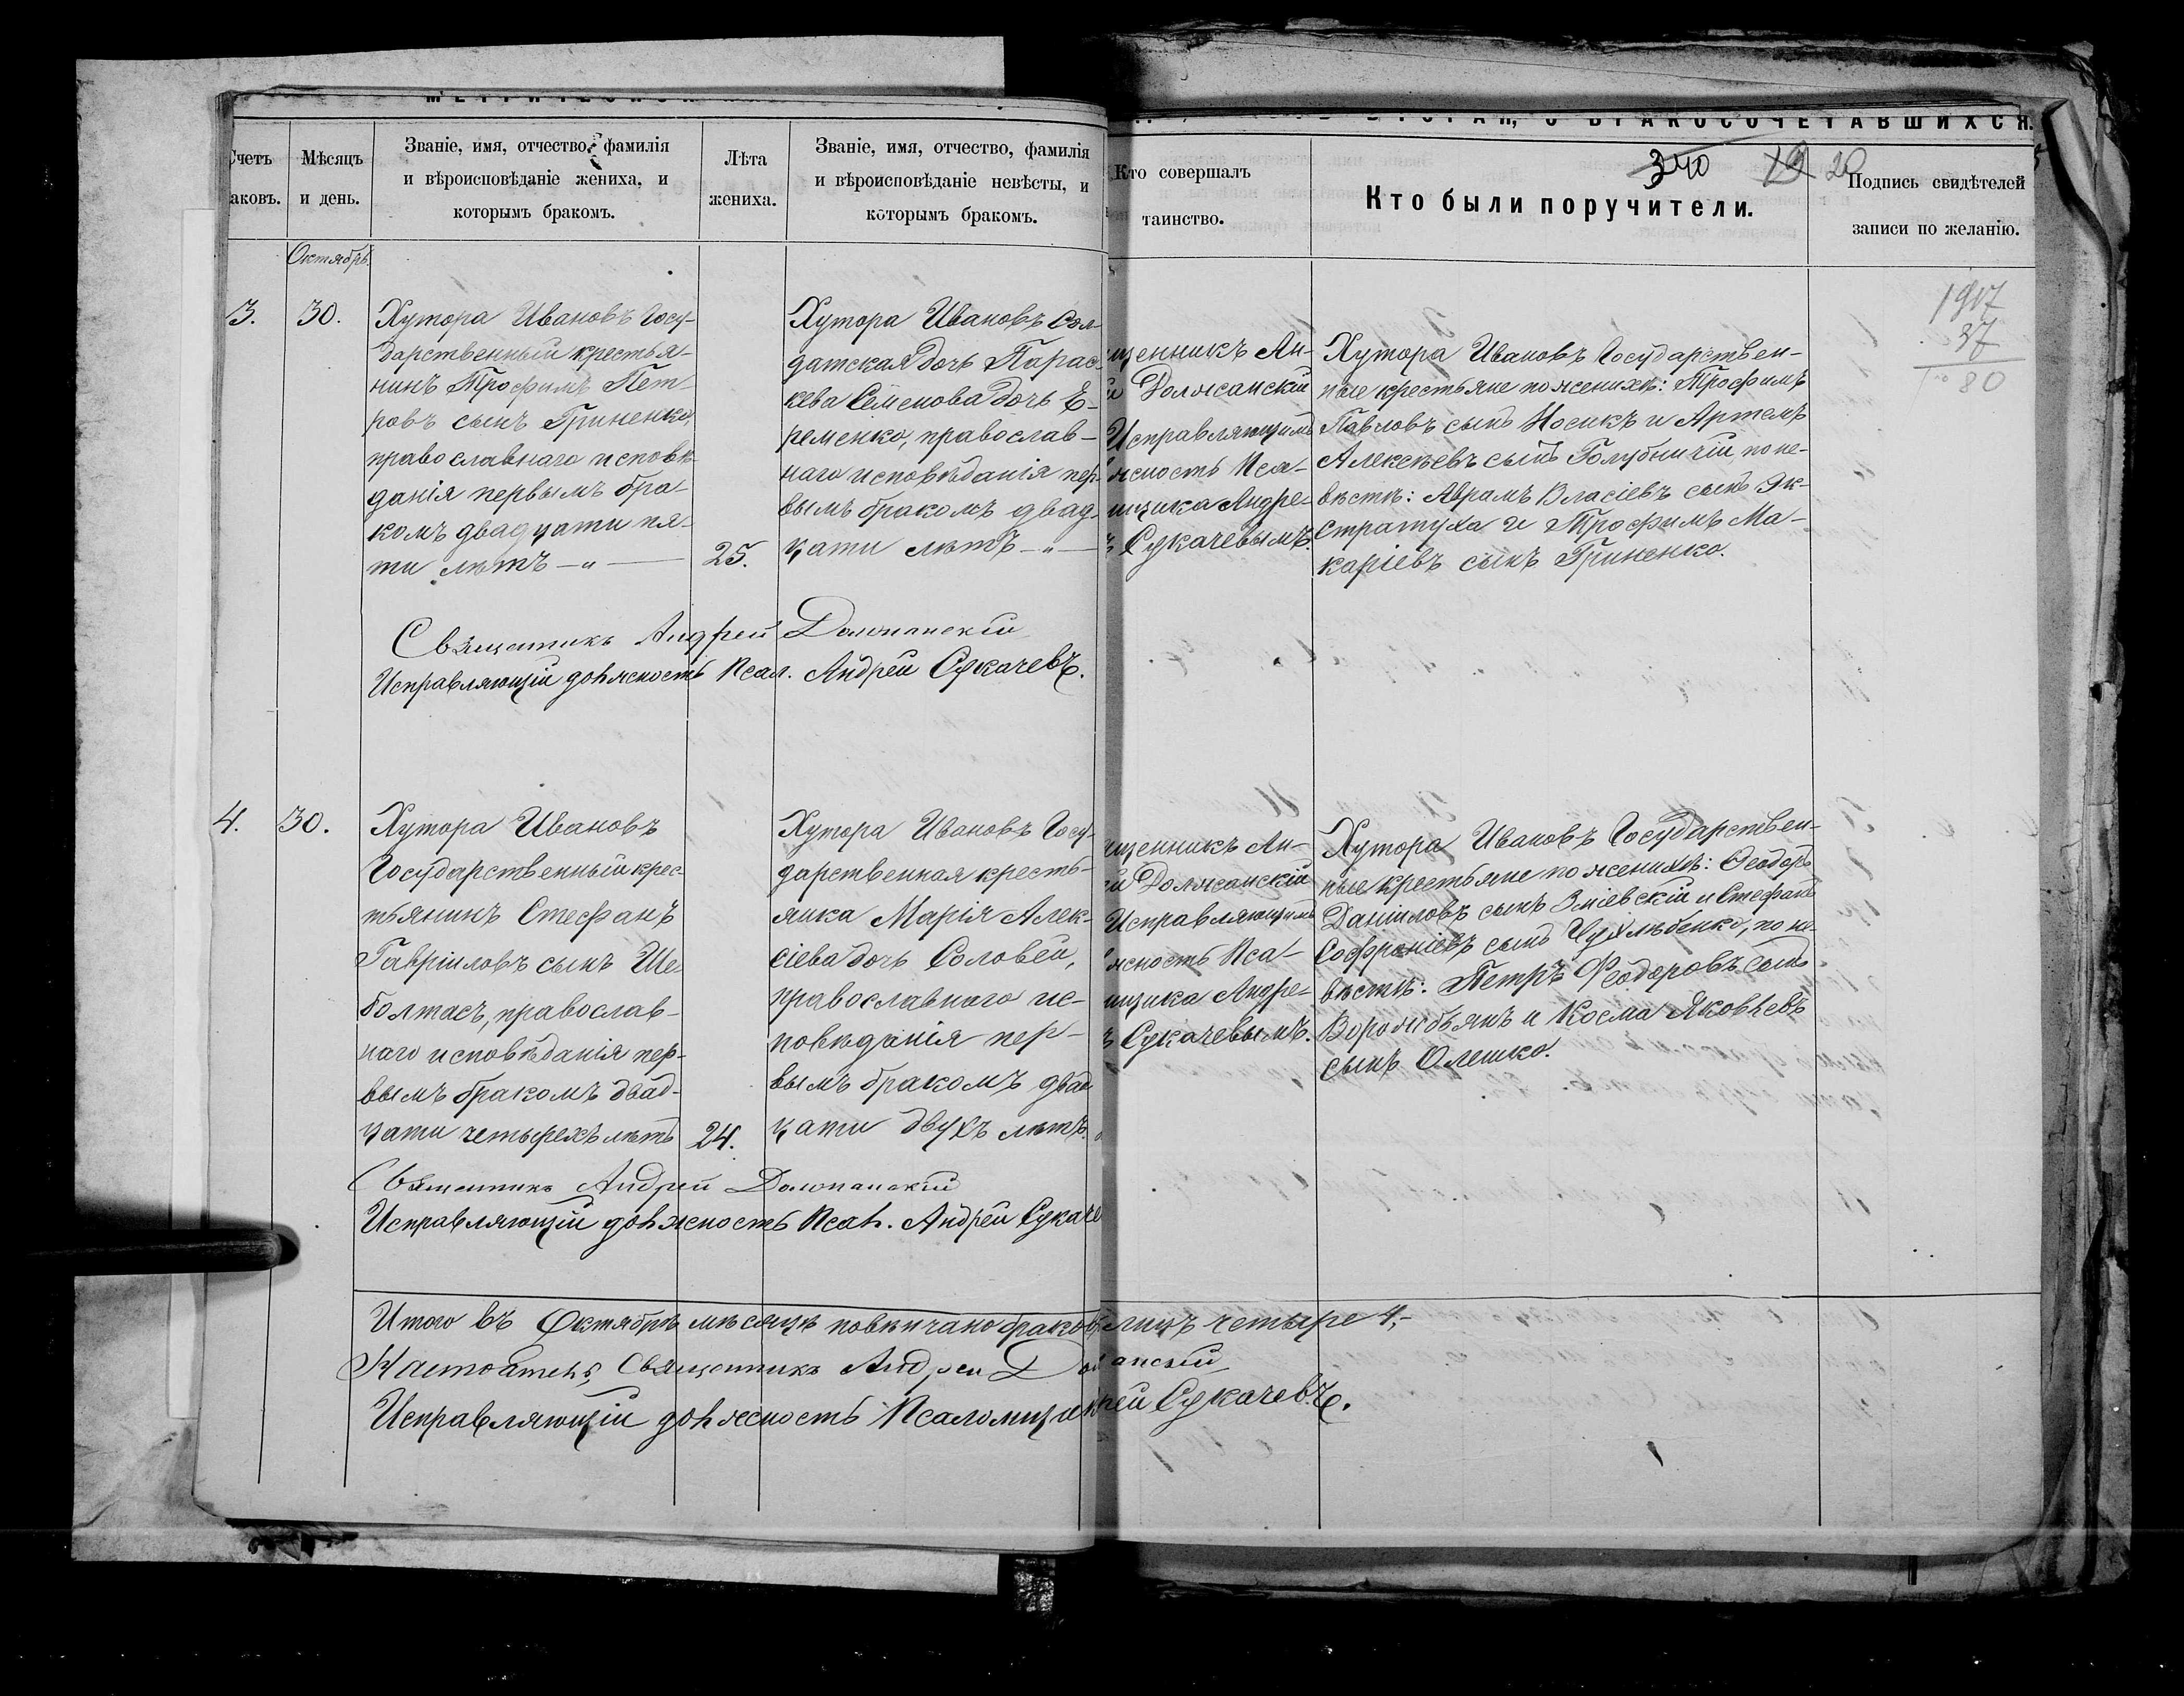 Счетъ
аковъ.
Мѣсяцъ
и день.
Званіе, имя, отчество, фамилія
и вѣроисповѣданіе жениха, и
которымъ бракомъ.
Лѣта
жениха.
Званіе, имя, отчество, фамилія
и вѣроисповѣданіе невѣсты, и
которымъ бракомъ.
Кто совершалъ
таинство.
340 19 20
Кто были поручители.
Подпись свидѣтелей
записи по желанію.
Октябрь.
3.
30.
Хутора Ивановъ Госу-
дарственный крестья-
нинъ Трофимъ Пет-
ровъ сынъ Гриненко,
православнаго исповѣ-
данія первымъ бра-
комъ двадцати пя-
ти лѣтъ —„—
25.
Хутора Ивановъ Сол-
датская дочь Парас-
кева Семенова дочь Е-
ременко, православ-
наго исповѣданія пер-
вымъ бракомъ двад-
цати лѣтъ —„—
щенникъ Ан-
й Должанскій
Исправляющимъ
жность Пса-
мщика Андре-
ъ Сукачевымъ.
Хутора Ивановъ Государствен-
ные крестьяне по женихѣ: Трофимъ
Павловъ сынъ Носикъ и Артемъ
Алексѣевъ сынъ Голубничій, по не-
вѣстѣ: Аврамъ Власіевъ сынъ
Стратуха и Трофимъ Ма-
каріевъ сынъ Гриненко.
1917
37
80
Священникъ Андрей Должанскій
Исправляющій должность Псал. Андрей Сукачевъ.
4.
30.
Хутора Ивановъ
Государственный крес-
тьянинъ Стефанъ
Гавріиловъ сынъ Ше-
болтасъ, православ-
наго исповѣданія пер-
вымъ бракомъ двад-
цати четырехъ лѣтъ
24.
Хутора Ивановъ Госу-
дарственная кресть-
янка Марія Алек-
сіева дочь Соловей,
православнаго ис-
повѣданія пер-
вымъ бракомъ двад
цати двухъ лѣтъ.
щенникъ Ан-
ей Должанскій
Исправляющимъ
жность Пса-
мщика Андре-
ъ Сукачевымъ.
Хутора Ивановъ Государствен-
ные крестьяне по женихѣ: Ѳеодоръ
Даніиловъ сынъ Зміевскій и Стефанъ
Софроніевъ сынъ по не-
вѣстѣ: Петръ Ѳеодоровъ сынъ
Ворожбьянъ и Косма Яковлевъ
сынъ Олешко.
Священникъ Андрей Должанскій
Исправляющій должность Псал. Андрей Сукаче
Итого въ Октябрѣ мѣсяцѣ повѣнчано браковъ лицъ четыре 4,-
Настоятель, Священникъ Андрей Должанскій
Исправляющій должность Псаломщи рей Сукачевъ.